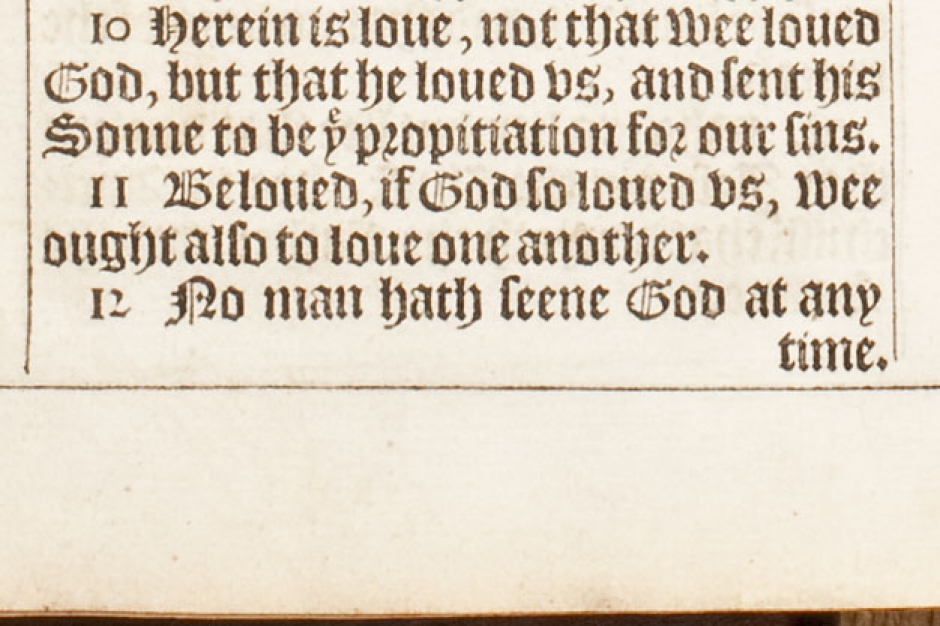 10 Herein is loue, not that wee loued
God, but that he loued vs, and sent his
Sonne to be yͤ propitiation for our sins.
11 Beloued, if God so loued vs, wee
ought also to loue one another.
12 No man hath seene God at any
time.